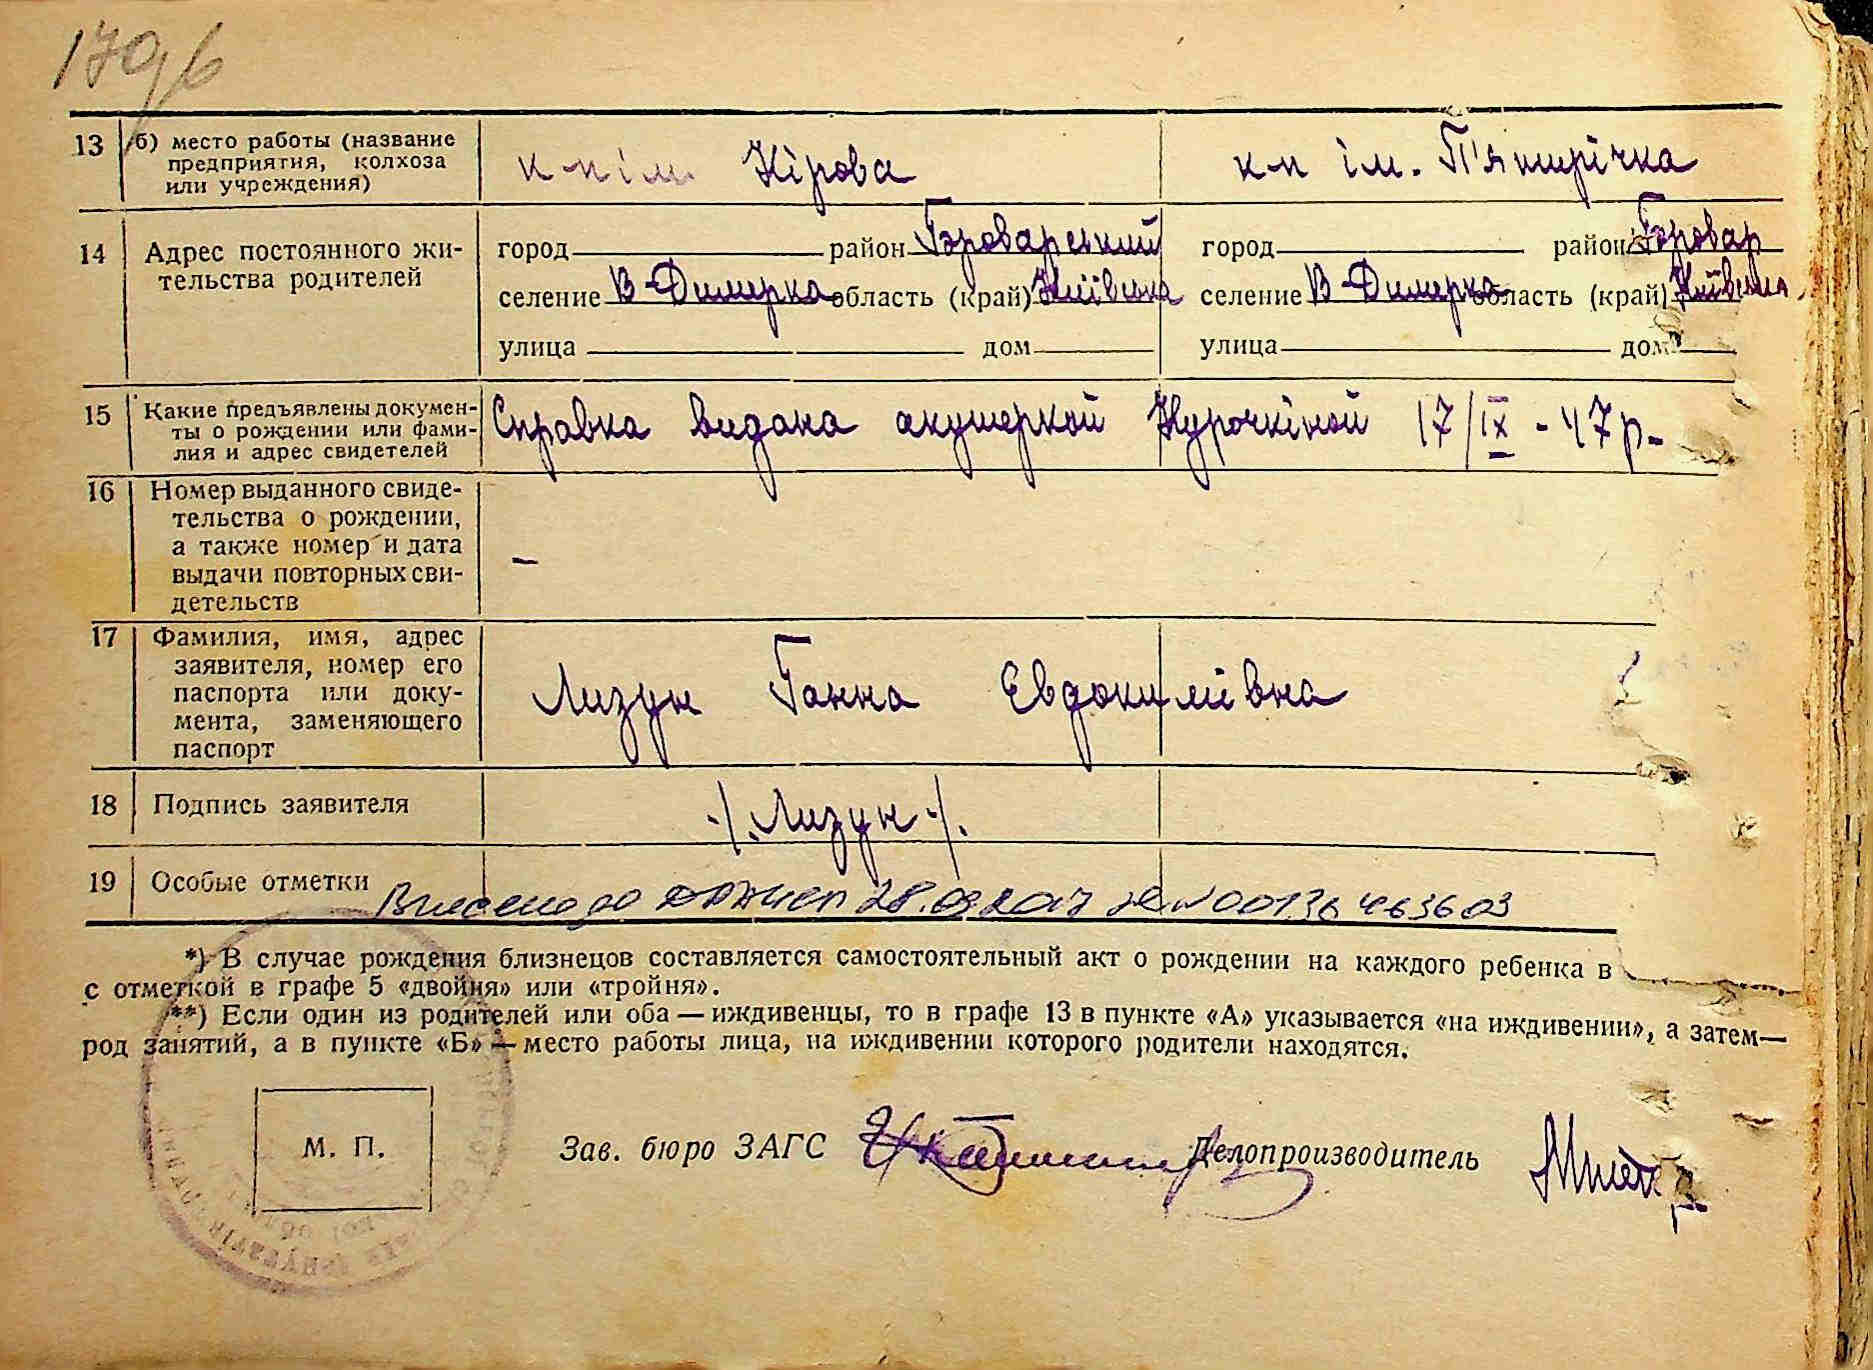 179б
13 б) место работы (название предприятия, колхоза или учреждения) к-п ім. Кірова к-п ім. П'ятирічка
14 Адрес постоянного жительства родителей
город район Броварський город район Бровар
селение В-Димерка область (край) Київська селение В-Димерка область (край) Київська
улица дом улица дом
15 Какие предъявлены документы о рождении или фамилия и адрес свидетелей Справка видана акушеркой Курочкіной 17/IX - 47 р.
16 Номер выданного свидетельства о рождении, а также номер и дата выдачи повторных свидетельств -
17 Фамилия, имя, адрес заявителя, номер его паспорта или документа, заменяющего паспорт Лизун Ганна Євдокимівна
18 Подпись заявителя ./.Лизун./.
19 Особые отметки Внесено до ДРАЦСГ 28.09.2017 № 00136463603
*) В случае рождения близнецов составляется самостоятельный акт о рождении на каждого ребенка в
с отметкой в графе 5 «двойня» или «тройня».
**) Если один из родителей или оба — иждивенцы, то в графе 13 в пункте «А» указывается «на иждивении», а затем—
род занятий, а в пункте «Б» — место работы лица, на иждивении которого родители находятся.
М. П. Зав. бюро ЗАГС Делопроизводитель